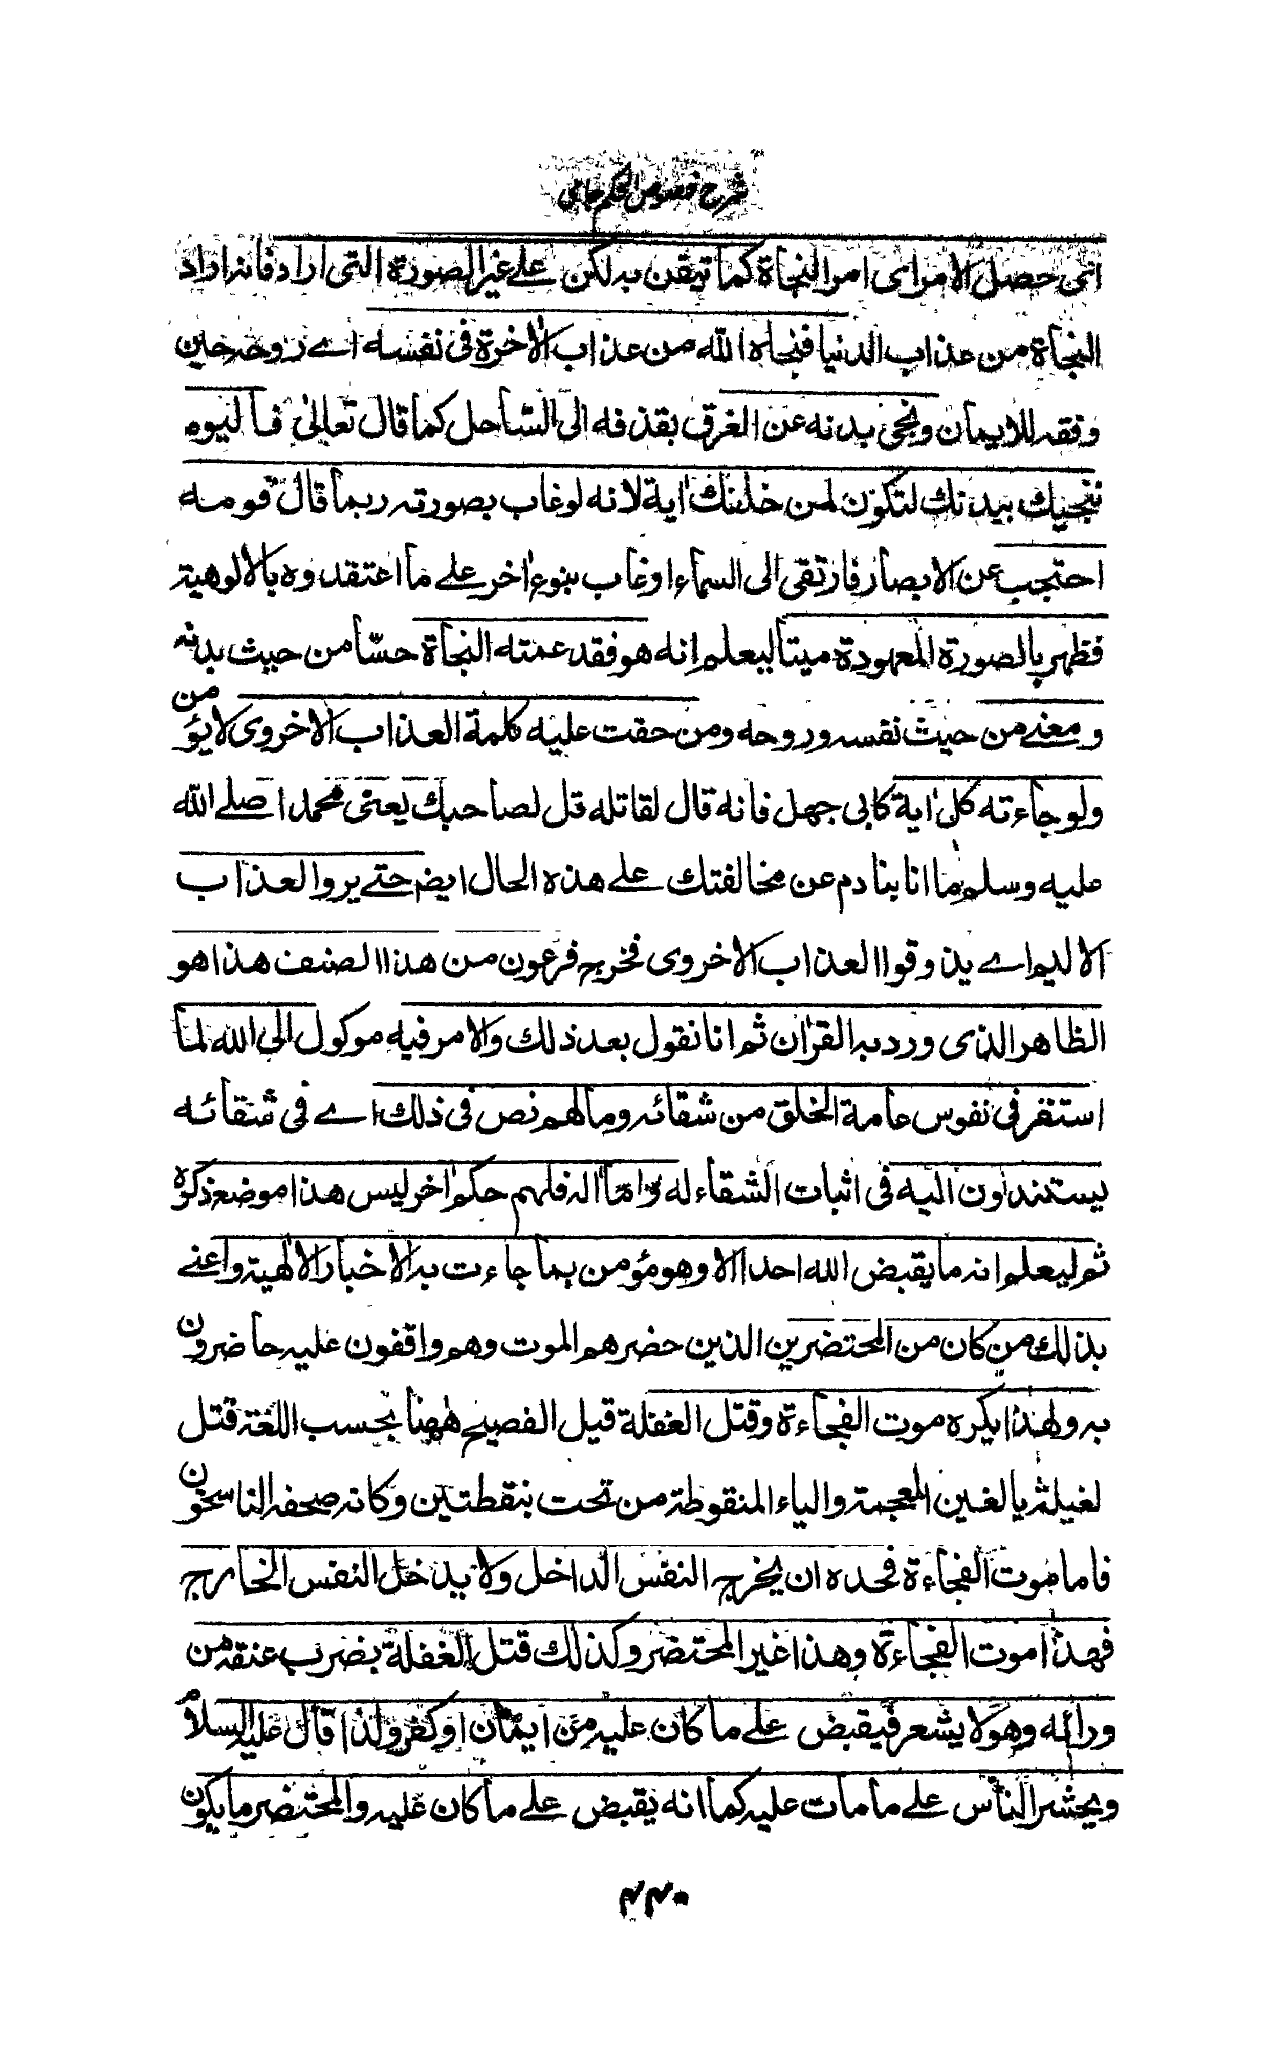 شرح فصوص الحكم جامي
اى حصل الامر اى امر النجاة كما تيقن به لكن على غير الصورة التى اراد فانه اراد
النجاة من عذاب الدنيا فنجاه الله من عذاب الاخرة فى نفسه اے روحه حين
وفقه للايمان ونجى بدنه عن الغرق بقذفه الى الساحل كما قال تعالىٰ فاليوم
ننجيك ببدنك لتكون لمن خلفك اٰية لانه لو غاب بصورته ربما قال قومه
احتجب عن الابصار فارتقى الى السماء او غاب بنوع اٰخر على ما اعتقدوه بالالوهية
فظهر بالصورة المعهودة ميتا ليعلم انه هو فقد عمته النجاة حسّا من حيث بدنه
ومعنے من حيث نفسه وروحه ومن حقت عليه كلمة العذاب الاخروى لا يؤمن
ولو جاءته كل اٰية كابى جهل فانه قال لقاتله قل لصاحبك يعنى محمدا صلے الله
عليه وسلم ما انا بنادم عن مخالفتك على هذه الحال ايضا حتے يروا العذاب
الاليم اے يذوقوا العذاب الاخروى فخرج فرعون من هذا الصنف هذا هو
الظاهر الذى ورد به القراٰن ثم انا نقول بعد ذلك والامر فيه موكول الى الله لما
استقر فى نفوس عامة الخلق من شقائه وما لهم نص فى ذلك اے فى شقائه
يستندون اليه فى اثبات الشقاء له واما اٰله فلهم حكم اٰخر ليس هذا موضع ذكره
ثم ليعلم انه ما يقبض الله احدا الا وهو مؤمن بما جاءت به الاخبار الالٰهية واعنے
بذلك من كان من المحتضرين الذين حضرهم الموت وهم واقفون عليه حاضرون
به ولهذا يكره موت الفجاءة وقتل الغفلة قيل الفصيح هٰهنا بحسب اللغة قتل
لغيلة بالغين المعجمة والياء المنقوطة من تحت بنقطتين وكانه صحفه الناسخون
فاما موت الفجاءة فحده ان يخرج النفس الداخل ولا يدخل النفس الخارج
فهذا موت الفجاءة وهذا غير المحتضر وكذلك قتل الغفلة بضرب عنقه من
ورائه وهو لا يشعر فيقبض على ما كان عليه من ايمان او كفر ولذا قال عليه السلام
ويحشر الناس على ما مات عليه كما انه يقبض على ما كان عليه والمحتضر ما يكون